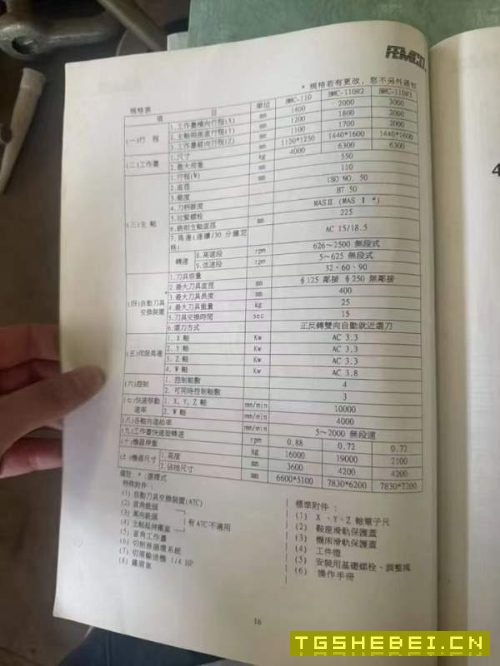 FEMCO
* 規格若有更改，恕不另外通知
規格表
項 目 單位 BMC-110 BMC-110R2 BMC-110R3
(一)行程 1.工作臺橫向行程(X) mm 1400 2000 3000
2.主軸頭垂直行程(Y) mm 1200 1800 2000
3.工作臺縱向行程(Z) mm 1100 1700 2000
(二)工作臺 1.尺寸 mm 1440*1600 1440*1600
2.最大荷重 kg 4000 6300 6300
(三)主軸 1.行程(W) mm 550
2.直徑 mm 110
3.錐度 ISO NO. 50
4.刀柄錐度 BT 50
5.拉緊螺栓
6.銑削主軸直徑 mm 225
AC 15/18.5
轉速 8.高速段 rpm 626~2500 無段式
9.低速段 rpm 5~625 無段式
(四)自動刀具交換裝置 1.刀具容量 32、60、90
2.最大刀具直徑 mm §125 鄰接 §250 無鄰接
3.最大刀具長度 mm 400
4.最大刀具重量 kg 25
5.刀具交換時間 sec 15
6.選刀方式 正反轉雙向自動就近選刀
(五)伺服馬達 1. X 軸 Kw AC 3.3
2. Y 軸 Kw AC 3.3
3. Z 軸 Kw AC 3.3
4. W 軸 Kw AC 3.8
(六)控制 1. 控制軸數 4
2. 可同時控制軸數 3
(七)快速移動速率 1. X、Y、Z 軸 mm/min 10000
2. W 軸 mm/min 4000
(八)各軸向進給率 mm/min 5~2000 無段速
(九)工作臺快速旋轉速 rpm 0.88 0.72 0.72
(十)機器淨重 kg 16000 19000
(十一)機器尺寸 1.高度 mm 3600 4200 4200
2.佔地尺寸 mm 6600*5100 7830*6200 7830*7200
特殊附件：
(1) 自動刀具交換裝置(ATC)
(2) 直角銑頭
(3) 萬向銑頭
(4) 主軸延伸襯套
有ATC不適用
(5) 直角工作臺
(6) 切削液循環系統
(7) 切屑輸送機 1/4 HP
標準附件：
(1) X、Y、Z 軸電子尺
(2) 鞍座滑軌保護蓋
(3) 機床滑軌保護蓋
(4) 工作燈
(5) 安裝用基礎螺栓、調整塊
(6) 操作手冊
16
4
TGSHEBEI.CN